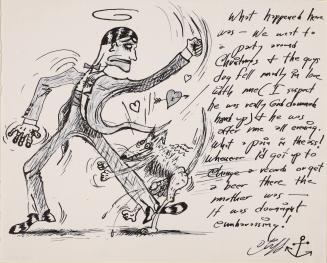 What happened here
was — we went to
a party around
Christmas & the guys
dog fell madly in love
with me (I suspect
he was really God damned
hard up) & he was
after me all evening.
What a pain in the ass!
Whenever I'd get up to
change a record or get
a beer there the
mother was —
It was downright
embarrassing!